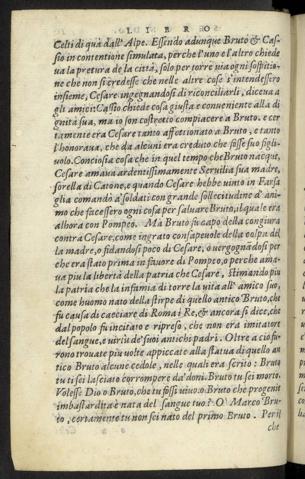 LIBRO
Celti di quà dall'Alpe. Essendo adunque Bruto & Cas-
sio in contentione simulata, perche l'uno e l'altro chiede
ua la pretura de la città, solo per torre uia ogni sospitio-
ne che non si credesse che nelle altre cose s'intendessero
insieme, Cesare ingegnandosi di reconciliarli, diceua a
gli amici: Cassio chiede cosa giusta e conueniente alla di
gnità sua, ma io son costretto compiacere a Bruto. e cer
tamente era Cesare tanto affettionato a Bruto, e tanto
l'honoraua, che da alcuni era creduto che fosse suo figli-
uolo. Conciosia cosa che in quel tempo che Bruto nacque,
Cesare amaua ardentissimamente Seruilia sua madre,
sorella di Catone, e quando Cesare hebbe uinto in Farsa
glia comandò a' soldati con grande sollecitudine d'ani-
mo che facessero ogni cosa per saluare Bruto, il quale era
alhora con Pompeo. Ma Bruto fu capo della congiura
contra Cesare, come ingrato consapeuole della colpa del
la madre, o fidandosi poco di Cesare, o uergognadosi per
che era stato prima in fauore di Pompeo, o perche ama-
ua piu la libertà della patria che Cesare, stimando piu
la patria che la infamia di torre la uita all'amico suo,
come huomo nato della stirpe di quello antico Bruto, che
fu causa di cacciare di Roma i Re, & ancora si dice, che
dal popolo fu incitato e ripreso, che non era imitatore
del sangue, e uirtù de' suoi antichi padri. Oltre a cio fu-
rono trouate piu uolte appiccate alla statua di quello an
tico Bruto alcune cedole, nelle quali era scrito: Bruto
tu ti sei lasciato corrompere da' doni. Bruto tu sei morto.
Volesse Dio o Bruto, che tu fossi uiuo. o Bruto che progenie
imbastardita è nata del sangue tuo? O Marco Bru-
to, certamente tu non sei nato del primo Bruto. Per il
che